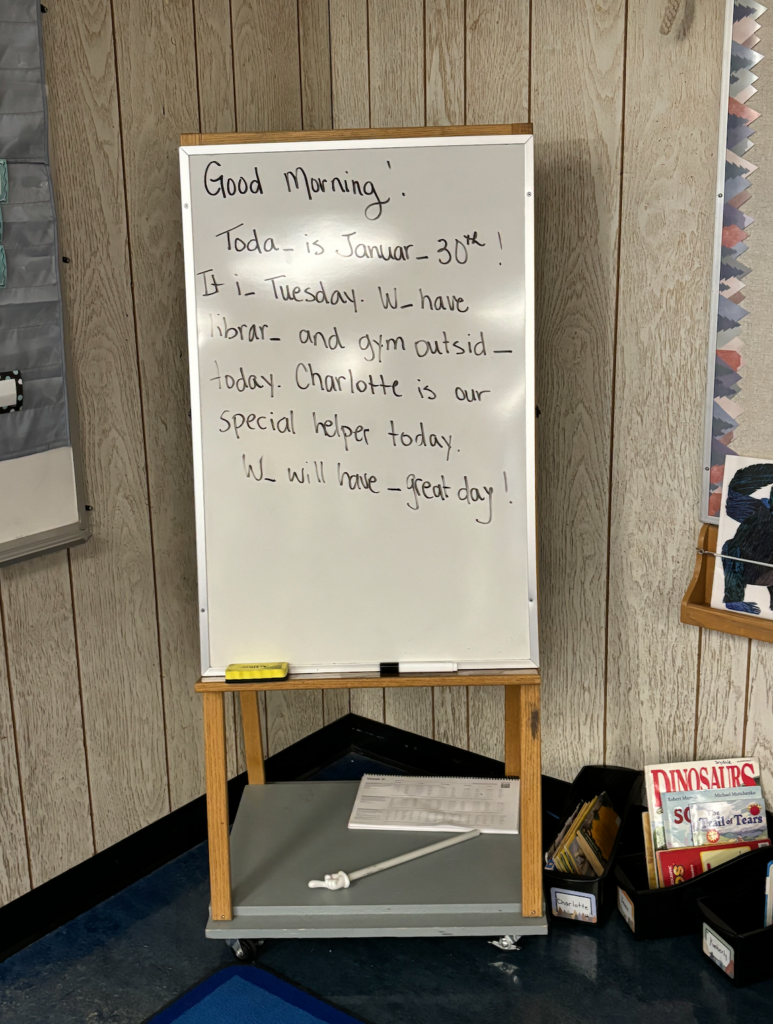 Good Morning!
Toda_ is Januar_ 30th!
It i_ Tuesday. W_ have
librar_ and gym outsid_
today. Charlotte is our
special helper today.
W_ will have _ great day!
DINOSAURS
Trail of Tears
Charlotte